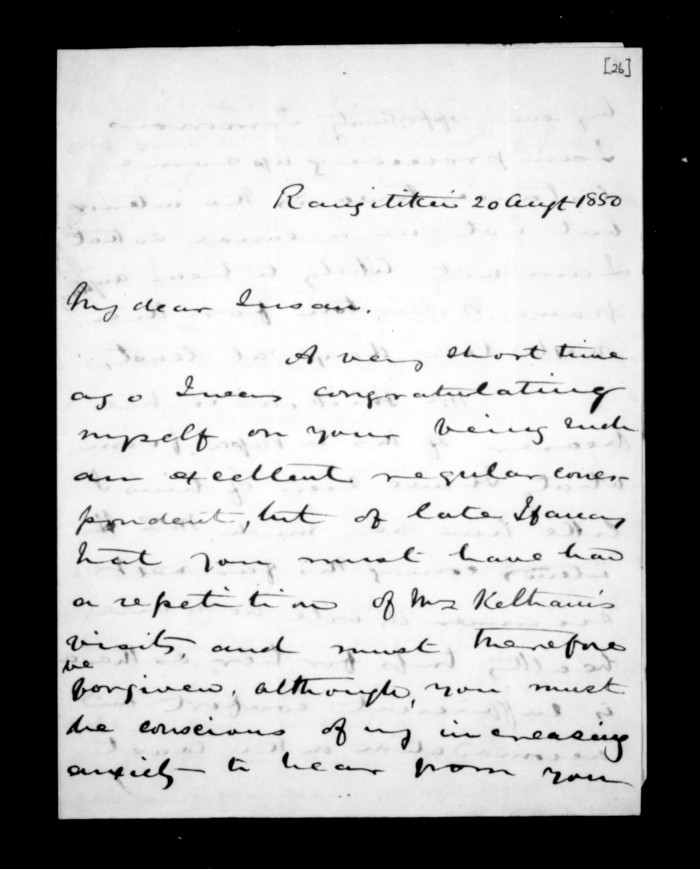 [26]
Rangitikei 20 Augt 1850
My dear Susan.
A very short time
ago I was congratulating
myself on your being such
an excellent regular corres
pondent, but of late I fancy
that you must have had
a repetition of Mrs Kelham's
visits, and must therefore
be
forgiven, although, you must
be conscious of my increasing
anxiety to hear from you